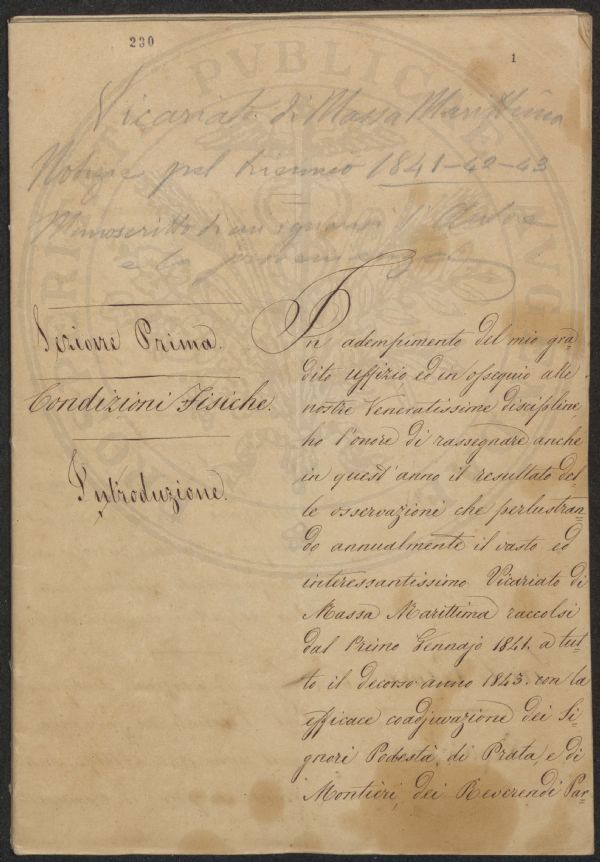 230
1
Vicariato di Massa Marittima
Notizie pel triennio 1841-42-43
Manoscritto di cui ignorasi l'Autore
e la provenienza
Sezione Prima.
Condizioni Fisiche.
Introduzione.
In adempimento del mio gra-
dito uffizio, ed in ossequio alle
nostre Veneratissime discipline
ho l'onore di rassegnare anche
in quest'anno il resultato del
le osservazioni che perlustran-
do annualmente il vasto ed
interessantissimo Vicariato di
Massa Marittima raccolsi
dal Primo Gennajo 1841. a tut-
to il decorso anno 1843. con la
efficace coadjuvazione dei Si-
gnori Podestà di Prata, e di
Montieri, dei Reverendi Par-